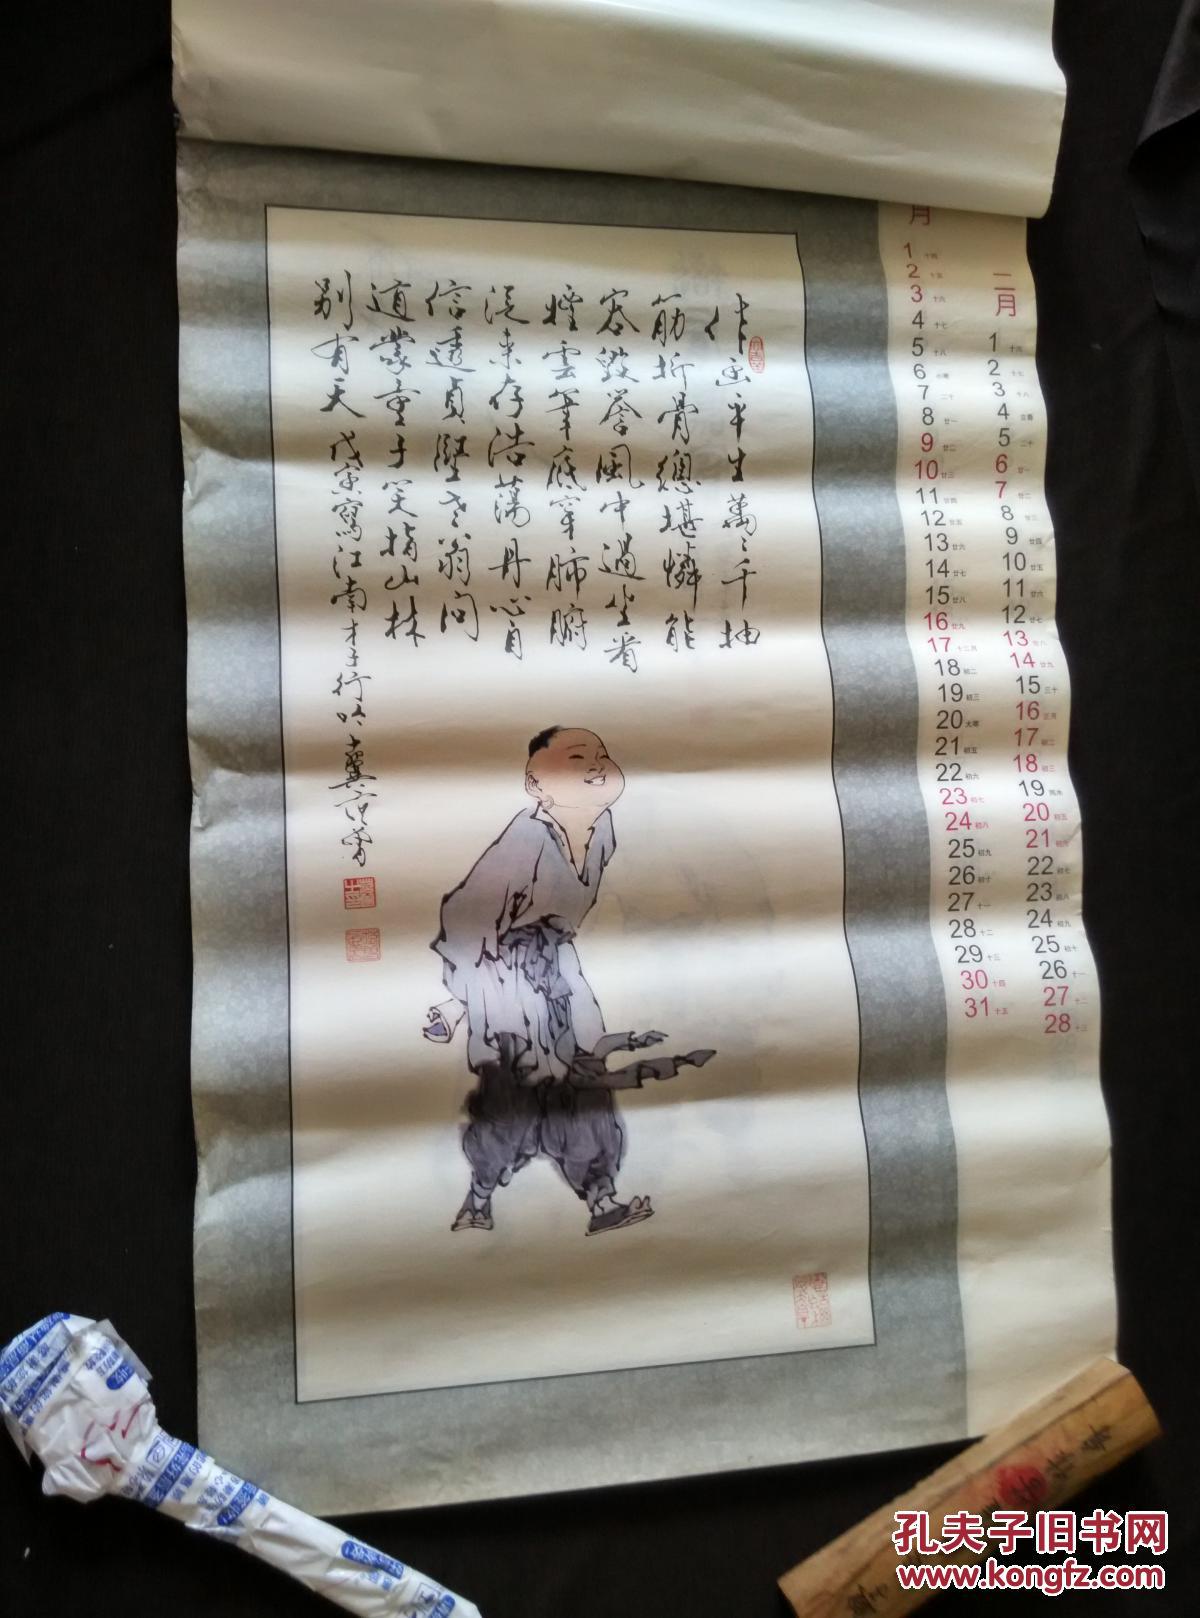 作画平生萬〻千抽
筋折骨總堪憐能
容毀誉風中過坐看
煙雲筆底穿肺腑
従来存浩蕩丹心自
信透貞堅老翁问
道蒙童子笑指山林
别有天 戊寅寫江南才子行吟
十翼范曽
月
1 十四
2 十五
3 十六
4 十七
5 十八
6 小寒
7 二十
8 廿一
9 廿二
10 廿三
11 廿四
12 廿五
13 廿六
14 廿七
15 廿八
16 廿九
17 十二月
18 初二
19 初三
20 大寒
21 初五
22 初六
23 初七
24 初八
25 初九
26 初十
27 十一
28 十二
29 十三
30 十四
31 十五
二月
1 十六
2 十七
3 十八
4 立春
5 二十
6 廿一
7 廿二
8 廿三
9 廿四
10 廿五
11 廿六
12 廿七
13 廿八
14 廿九
15 三十
16 正月
17 初二
18 初三
19 雨水
20 初五
21 初六
22 初七
23 初八
24 初九
25 初十
26 十一
27 十二
28 十三
孔夫子旧书网
www.kongfz.com